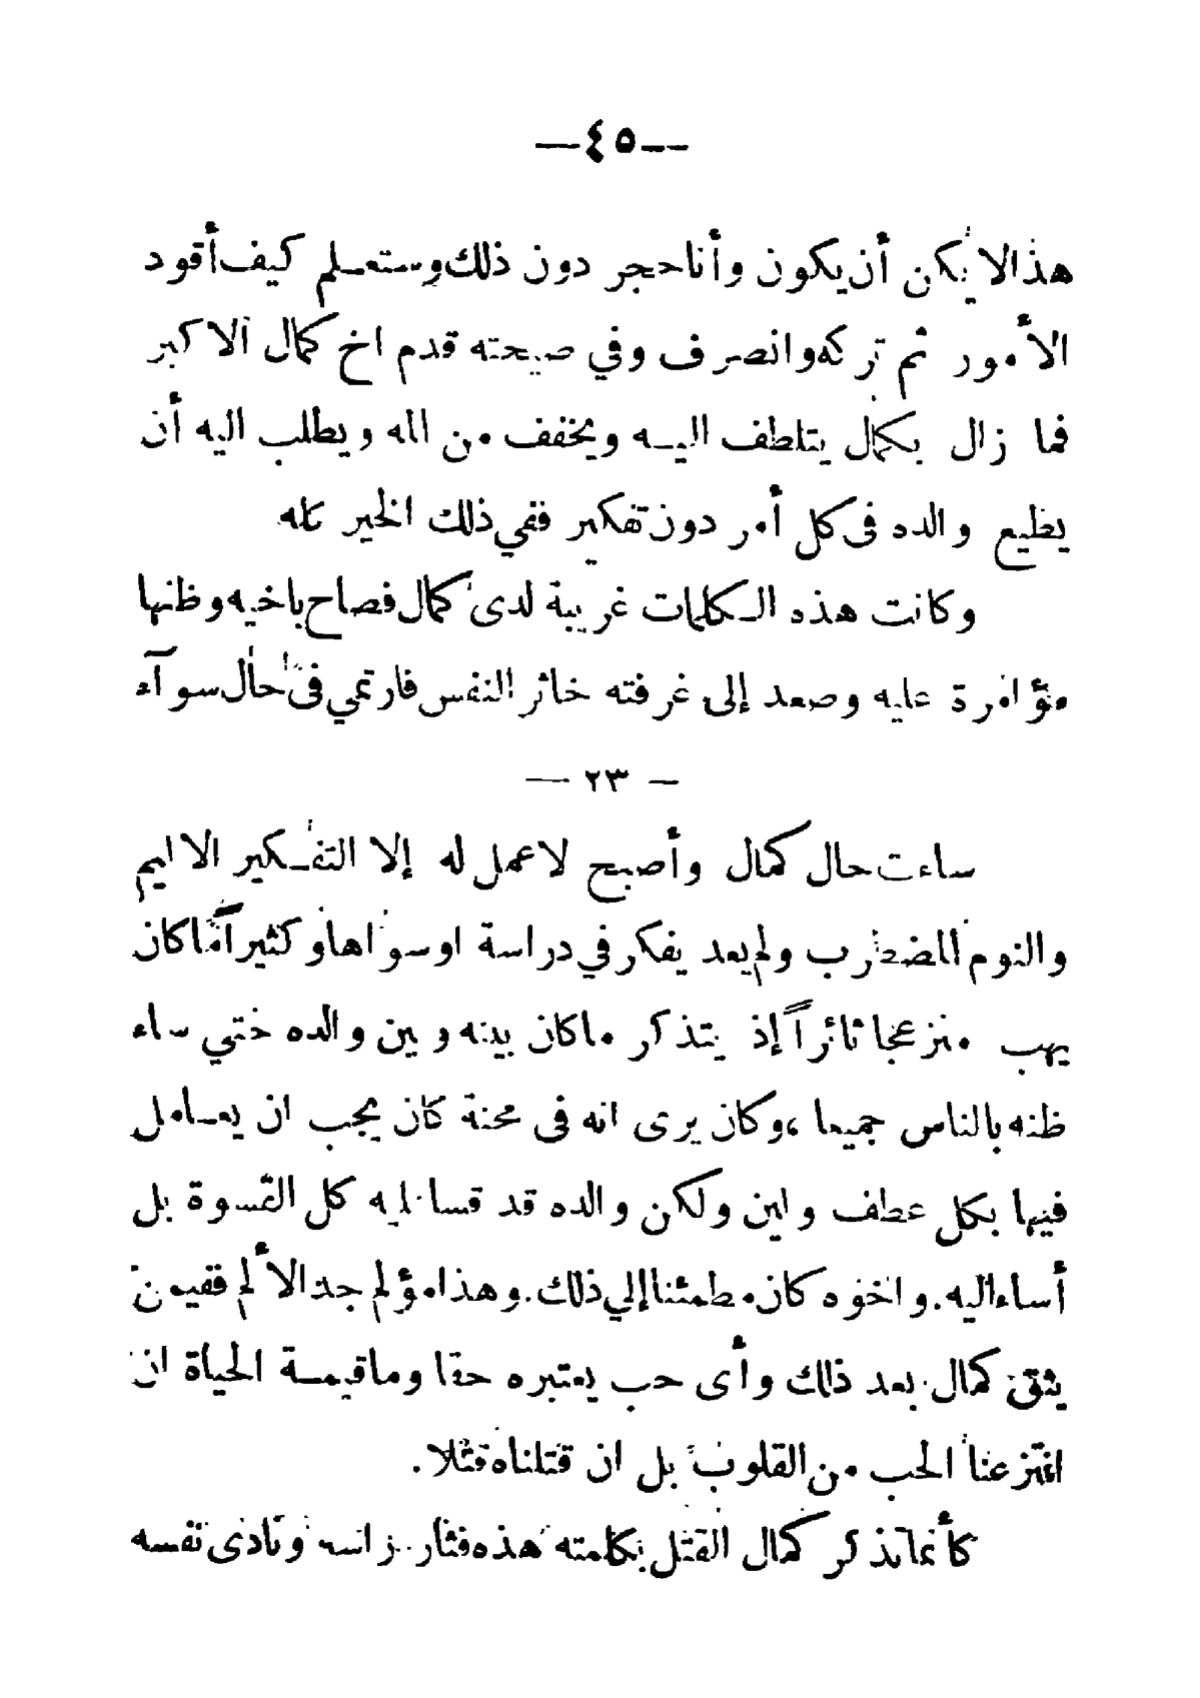 —٤٥—
هذا لا يمكن أن يكون وأنا حجر دون ذلك وستعلم كيف أقود
الأمور ثم تركه وانصرف وفي صبيحته قدم اخ كمال الاكبر
فما زال بكمال يتلطف اليه ويخفف من المه ويطلب اليه أن
يطيع والده فى كل أمر دون تفكير ففي ذلك الخير كله
وكانت هذه الكلمات غريبة لدى كمال فصاح باخيه وظنها
مؤامرة عليه وصعد إلى غرفته خائر النفس فارتمي فى حال سوآء
— ٢٣ —
ساءت حال كمال وأصبح لا عمل له إلا التفكير الاليم
والنوم المضطرب ولم يعد يفكر في دراسة او سواها وكثيراً ما كان
يهب منزعجا ثائراً إذ يتذكر ما كان بينه وبين والده حتي ساء
ظنه بالناس جميعا ، وكان يرى انه فى محنة كان يجب ان يعامل
فيها بكل عطف ولين ولكن والده قد قسا عليه كل القسوة بل
أساء اليه . واخوه كان مطمئنا إلي ذلك . وهذا مؤلم جد الألم ففيمن
يثق كمال بعد ذلك وأى حب يعتبره حقا وما قيمة الحياة ان
انتزعنا الحب من القلوب بل ان قتلناه قتلا .
كأنما تذكر كمال القتل بكلمته هذه فثار رأسه ونادى نفسه